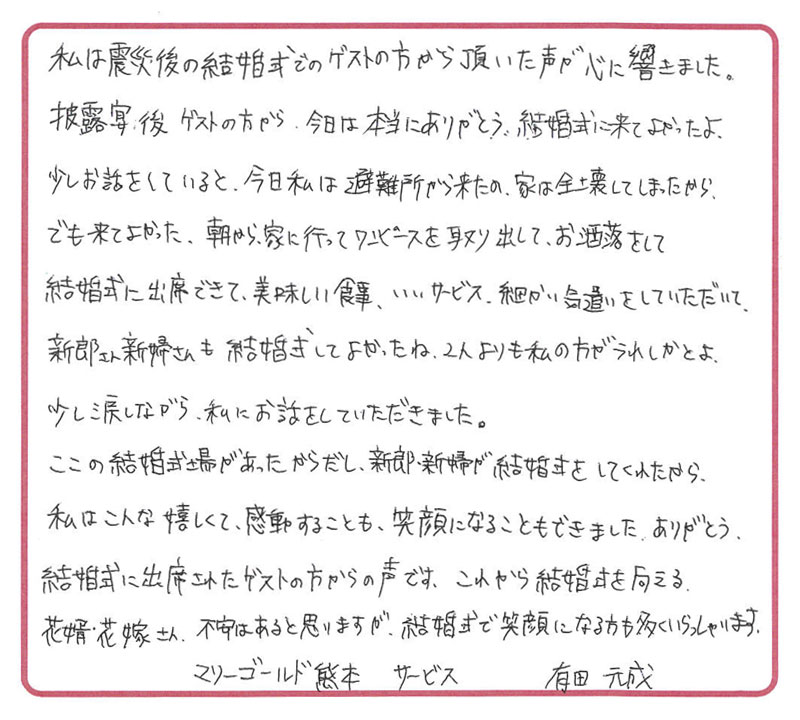 私は震災後の結婚式でのゲストの方から頂いた声が心に響きました。
披露宴後 ゲストの方から、今日は本当にありがとう、結婚式に来てよかったよ、
少しお話をしていると、今日私は避難所から来たの、家は全壊してしまったから、
でも来てよかった、朝から、家に行ってワンピースを取り出して、お洒落をして
結婚式に出席できて、美味しい食事、いいサービス、細かい気遣いをしていただいて、
新郎さん新婦さんも結婚式してよかったね、2人よりも私の方がうれしかとよ、
少し涙しながら、私にお話をしていただきました。
ここの結婚式場があったからだし、新郎・新婦が結婚式をしてくれたから、
私はこんな嬉しくて、感動することも、笑顔になることもできました、ありがとう、
結婚式に出席されたゲストの方からの声です、これから結婚式を向える、
花婿・花嫁さん、不安はあると思いますが、結婚式で笑顔になる方も多くいらっしゃいます、
マリーゴールド熊本 サービス 有田 元成